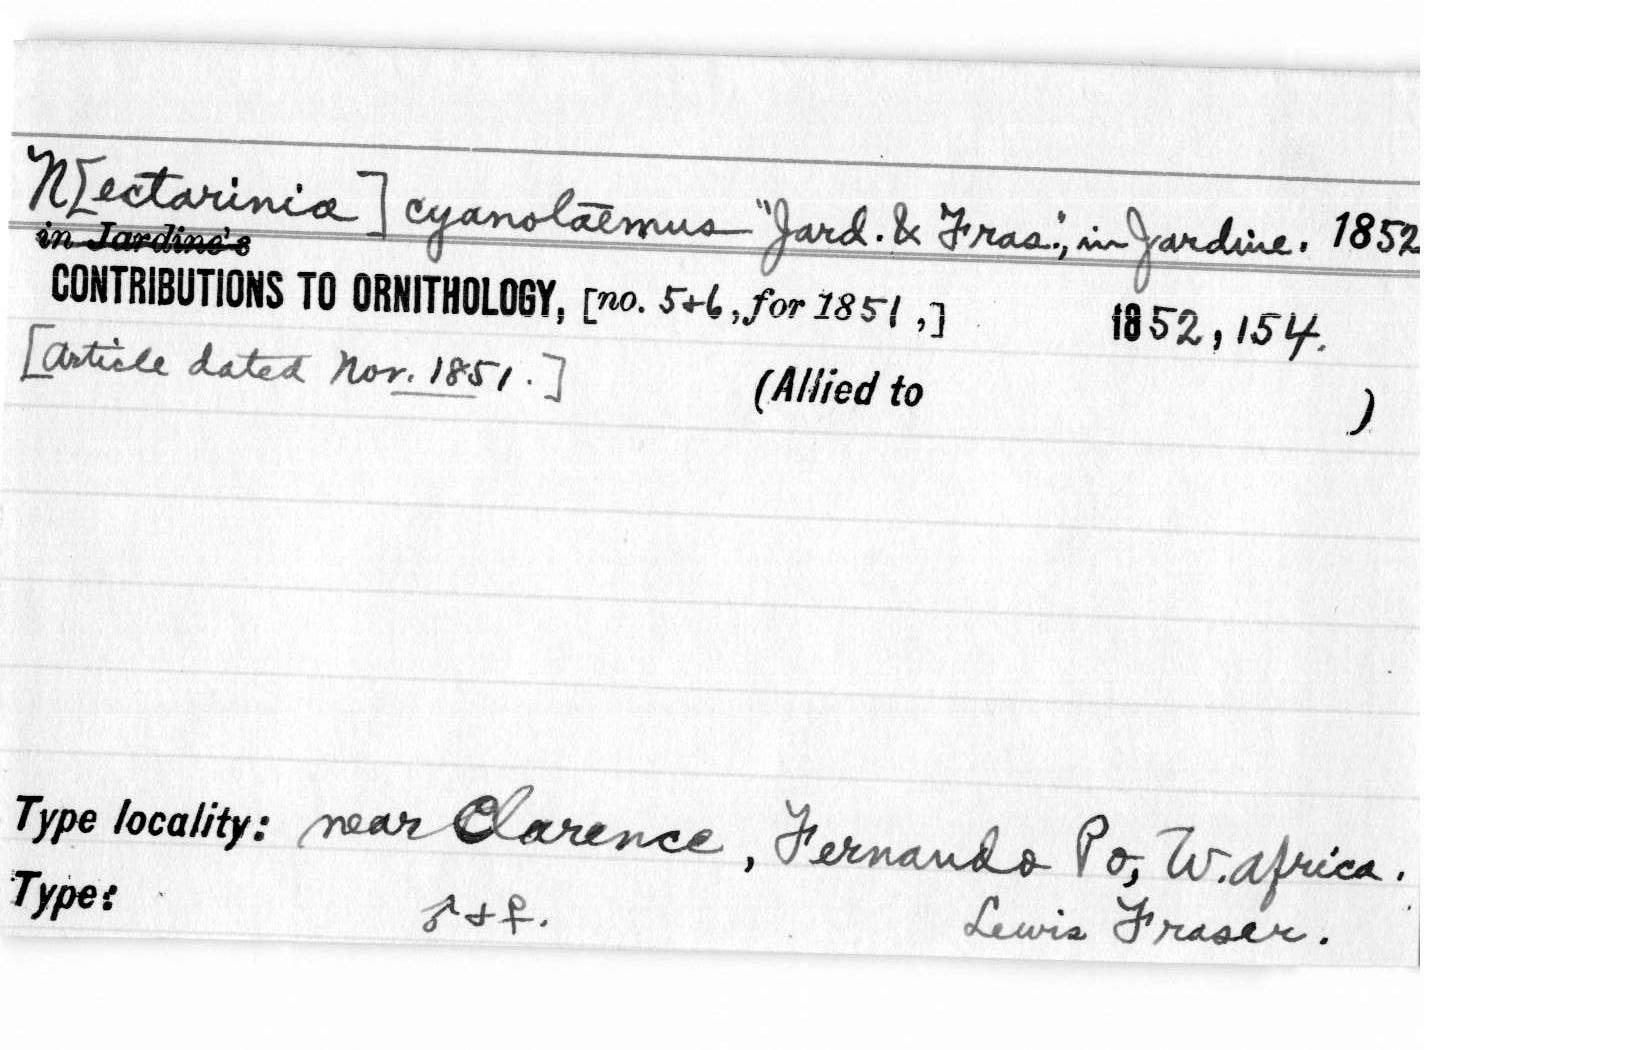 N[ectarinia] cyanolaemus "Jard. & Fras.", in Jardine. 1852
in Jardine's
CONTRIBUTIONS TO ORNITHOLOGY, [no. 5+6, for 1851,] 1852, 154.
[Article dated Nov. 1851.] (Allied to )
Type locality: near Clarence, Fernando Po, W. Africa.
Type: ♂ + ♀. Lewis Fraser.